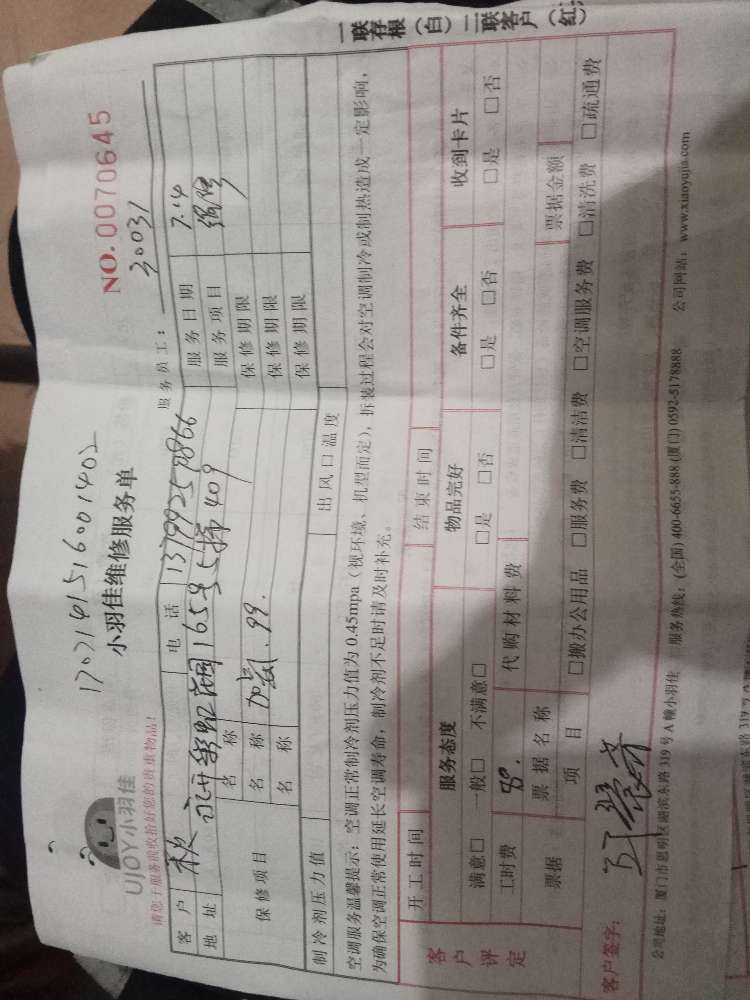 一联存根（白）二联客户（红
1702141516001402
UJOY小羽佳
小羽佳维修服务单
NO.0070645
请您于服务前收拾好您的贵重物品！
服务员工：30031
客户 电话 服务日期 7.4
地址 1659 409 服务项目
保修项目 名称 保修期限
名称 加氨 99. 保修期限
名称 保修期限
制冷剂压力值 出风口温度
空调服务温馨提示：空调正常制冷剂压力值为0.45mpa（视环境、机型而定），拆装过程会对空调制冷或制热造成一定影响，
为确保空调正常使用延长空调寿命，制冷剂不足时请及时补充。
开工时间 结束时间
客户评定 服务态度 物品完好 备件齐全 收到卡片
满意□ 一般□ 不满意□ □是 □否 □是 □否 □是 □否
工时费 代购材料费
票据 票据名称 票据金额
项目 □搬办公用品 □服务费 □清洁费 □空调服务费 □清洗费 □疏通费
客户签字：
公司地址：厦门市思明区湖滨东路319号A幢小羽佳 服务热线：(全国) 400-6655-888 (厦门) 0592-5178888 公司网站：www.xiaoyujia.com